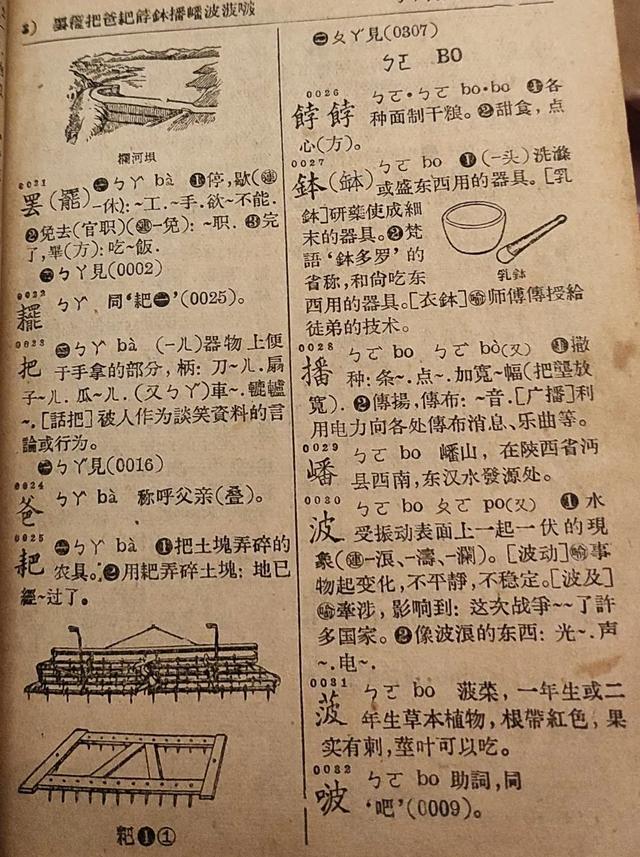 罢䎱把爸耙餑鉢播嶓波菠啵
攔河垻
0021
罢(罷) ㊀ㄅㄚˋ bà ❶停,歇(㊣
-休):~工.~手.欲~不能.
❷免去(官职)(㊣-免):~职.❸完
了,畢(方):吃~飯.
㊁ㄅㄚ見(0002)
0022
ㄅㄚˋ 同'耙㊀'(0025)。
0023
把 ㊁ㄅㄚˋ bà (-ㄦ)器物上便
于手拿的部分,柄:刀~ㄦ.扇
子~ㄦ.瓜~ㄦ.(又ㄅㄚ)車~.轆轤
~.[話把]被人作为談笑資料的言
論或行为。
㊀ㄅㄚ見(0016)
0024
爸 ㄅㄚˋ bà 称呼父亲(叠)。
0025
耙 ㊀ㄅㄚˋ bà ❶把土塊弄碎的
农具。❷用耙弄碎土塊:地已
經~过了。
耙❶①
㊁ㄆㄚ見(0307)
ㄅㄛ BO
0026
餑餑 ㄅㄛ·ㄅㄛ bo·bo ❶各
种面制干粮。❷甜食,点
心(方)。
0027
鉢(缽) ㄅㄛ bo ❶(-头)洗滌
或盛东西用的器具。[乳
鉢]研藥使成細
末的器具。❷梵
語'鉢多罗'的
省称,和尙吃东
西用的器具。[衣鉢]㊣师傅傳授給
徒弟的技术。
乳鉢
0028
播 ㄅㄛ bo ㄅㄛˋ bò(又) ❶撒
种:条~.点~.加宽~幅(把壟放
寬).❷傳揚,傳布:~音.[广播]利
用电力向各处傳布消息、乐曲等。
0029
嶓 ㄅㄛ bo 嶓山,在陝西省沔
县西南,东汉水發源处。
0030
波 ㄅㄛ bo ㄆㄛ po(又) ❶水
受振动表面上一起一伏的現
象(㊣-浪、-濤、-瀾)。[波动]㊣事
物起变化,不平靜,不稳定。[波及]
㊣牽涉,影响到:这次战爭~~了許
多国家。❷像波浪的东西:光~.声
~.电~.
0031
菠 ㄅㄛ bo 菠菜,一年生或二
年生草本植物,根帶紅色,果
实有刺,莖叶可以吃。
0032
啵 ㄅㄛ bo 助詞,同
'吧'(0009)。